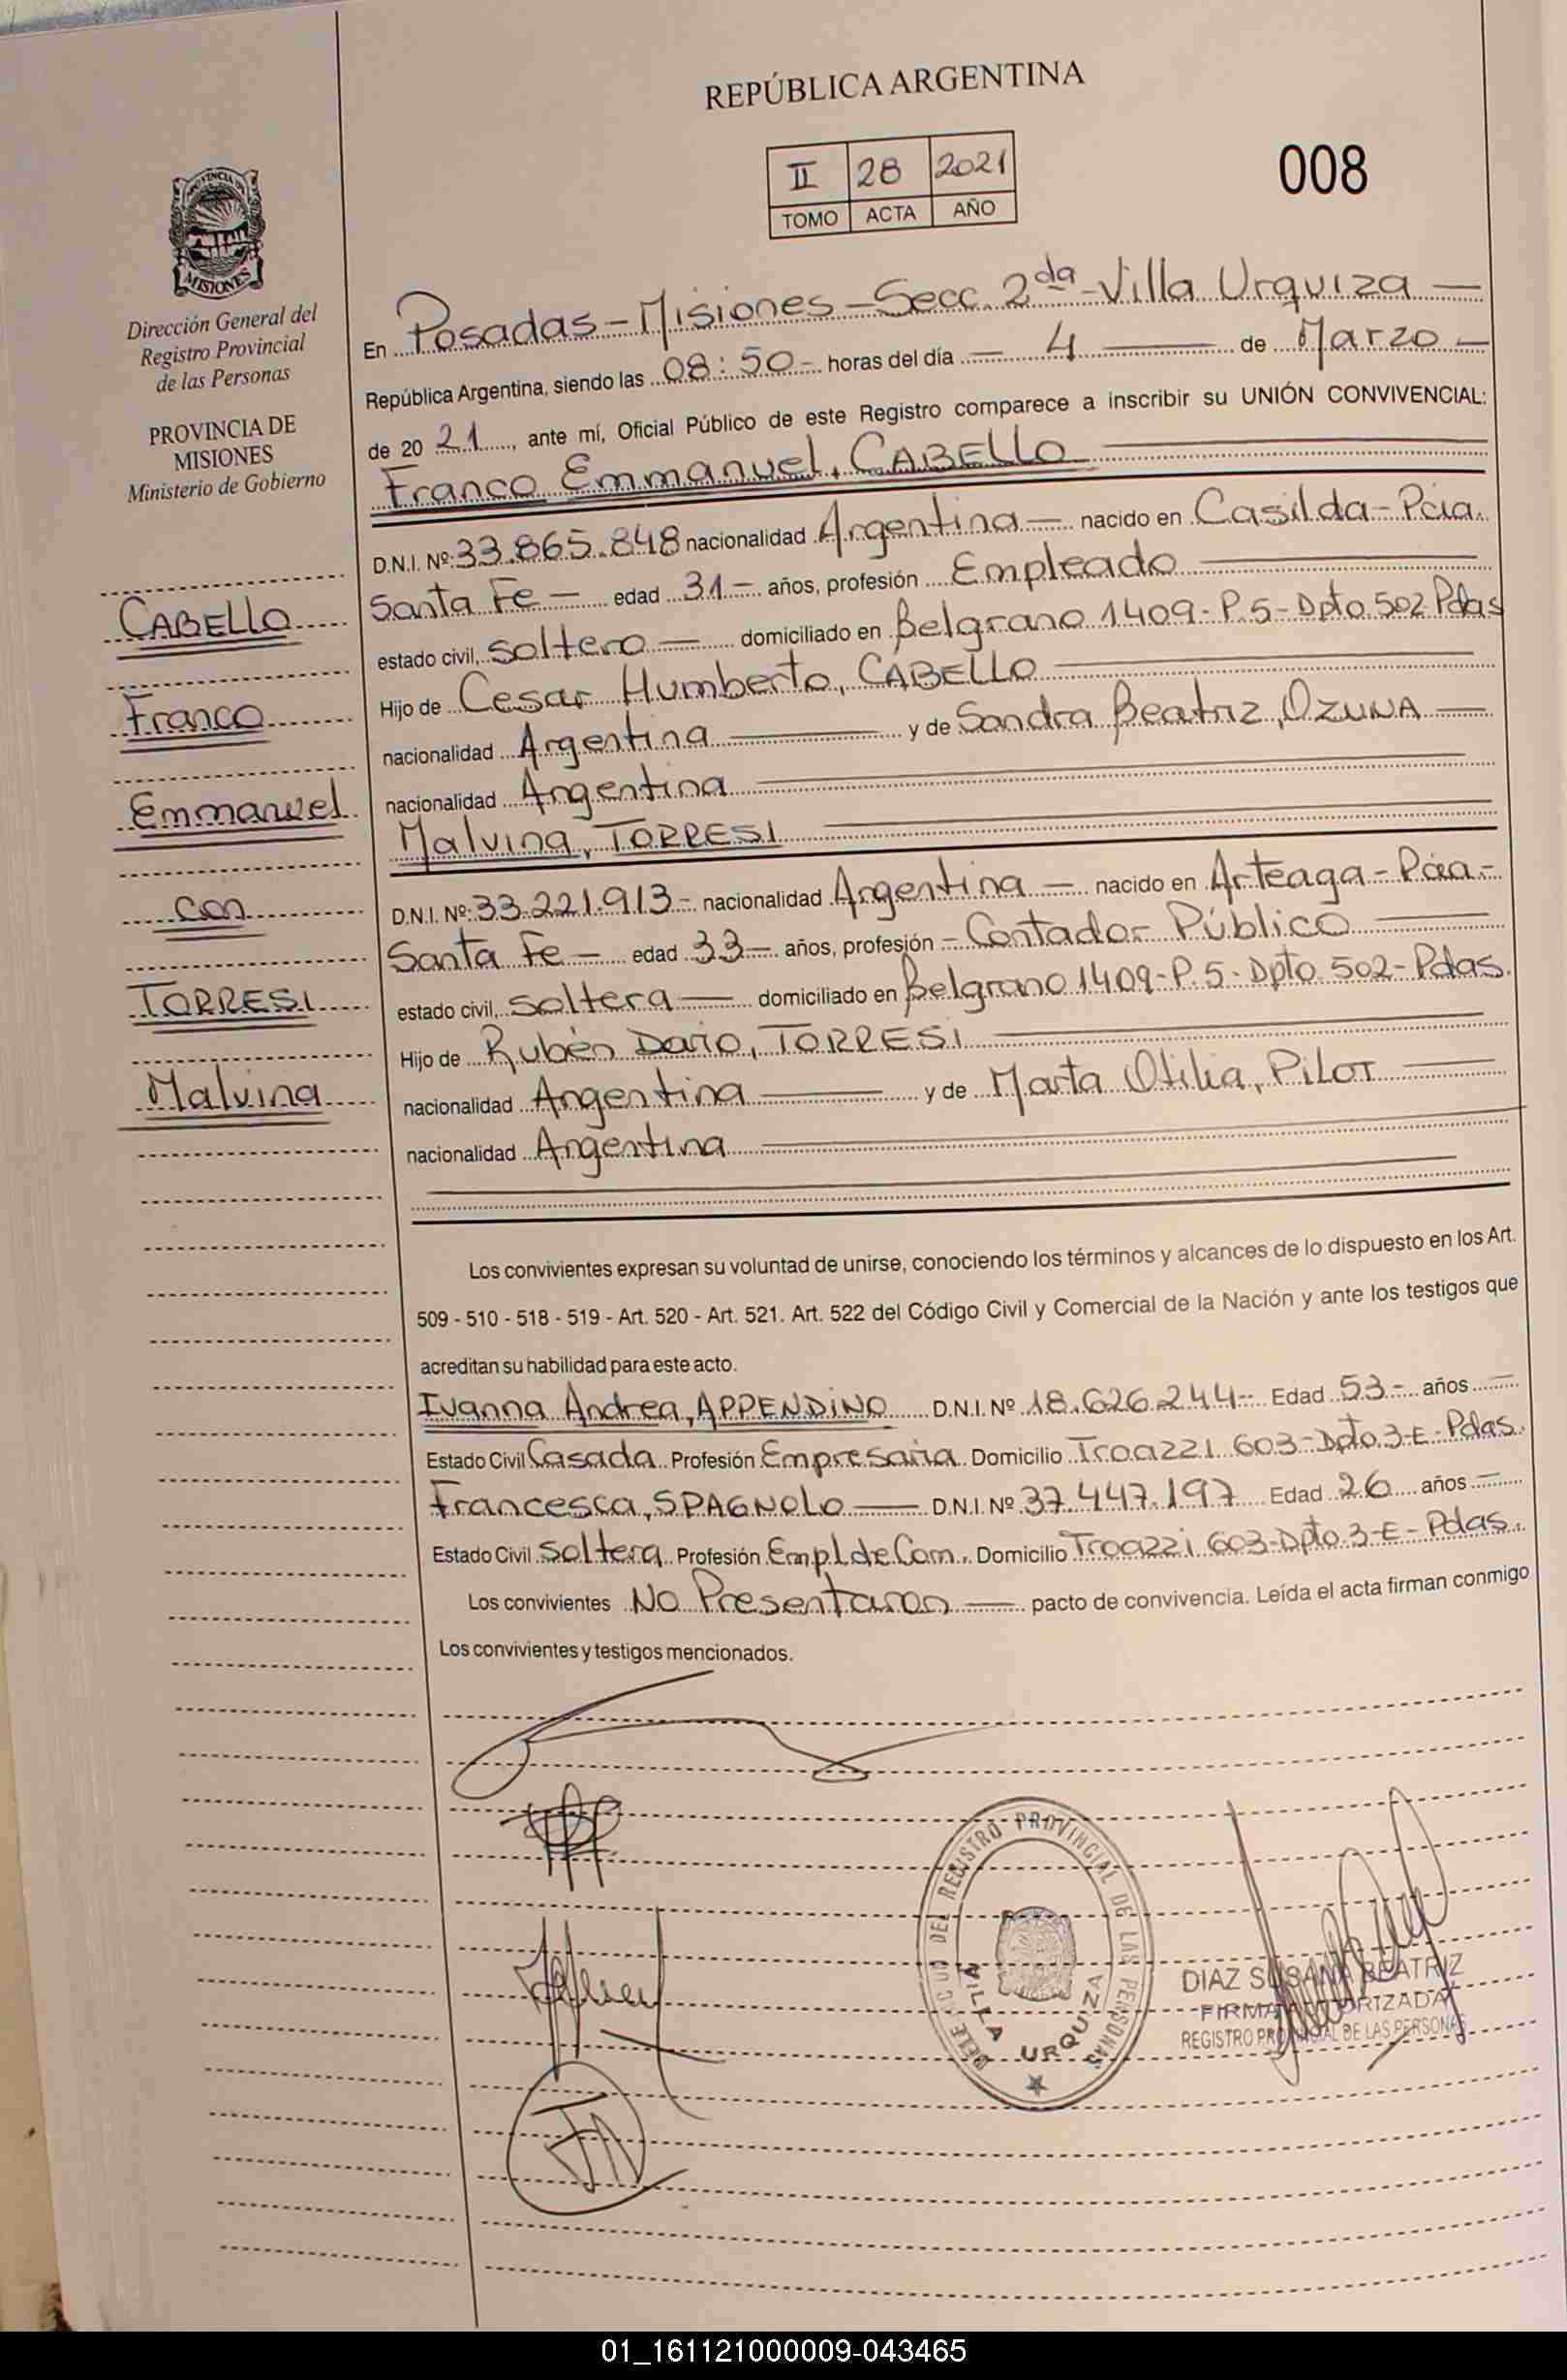 REPÚBLICA ARGENTINA
II 28 2021
TOMO ACTA AÑO
008
PROVINCIA DE
MISIONES
Dirección General del
Registro Provincial
de las Personas
PROVINCIA DE
MISIONES
Ministerio de Gobierno
CABELLO
Franco
Emmanuel
con
TORRESI
Malvina
En Posadas-Misiones-Secc. 2da-Villa Urquiza —
República Argentina, siendo las 08:50- horas del día — 4 — de Marzo —
de 20 21, ante mí, Oficial Público de este Registro comparece a inscribir su UNIÓN CONVIVENCIAL:
Franco Emmanuel, CABELLO
D.N.I. Nº: 33.865.848 nacionalidad Argentina — nacido en Casilda-Pcia.
Santa Fe — edad 31 — años, profesión Empleado —
estado civil, soltero — domiciliado en Belgrano 1409-P.5-Dpto.502-Pdas
Hijo de Cesar Humberto, CABELLO —
nacionalidad Argentina — y de Sandra Beatriz, OZUNA —
nacionalidad Argentina —
Malvina, TORRESI —
D.N.I. Nº: 33.221.913- nacionalidad Argentina — nacido en Arteaga-Pcia-
Santa Fe — edad 33 — años, profesión - Contador Público —
estado civil, soltera — domiciliado en Belgrano 1409-P.5-Dpto.502-Pdas.
Hijo de Rubén Dario, TORRESI —
nacionalidad Argentina — y de Marta Otilia, PILOT —
nacionalidad Argentina —
Los convivientes expresan su voluntad de unirse, conociendo los términos y alcances de lo dispuesto en los Art.
509 - 510 - 518 - 519 - Art. 520 - Art. 521. Art. 522 del Código Civil y Comercial de la Nación y ante los testigos que
acreditan su habilidad para este acto.
Ivanna Andrea, APPENDINO D.N.I. Nº 18.626.244- Edad 53- años —
Estado Civil Casada Profesión Empresaria Domicilio Troazzi 603-Dpto.3-E-Pdas.
Francesca, SPAGNOLO — D.N.I. Nº 37.447.197 Edad 26 años —
Estado Civil Soltera Profesión Empl.de Com. Domicilio Troazzi 603-Dpto.3-E-Pdas.
Los convivientes No Presentaron — pacto de convivencia. Leída el acta firman conmigo
Los convivientes y testigos mencionados.
DELEGACION DEL REGISTRO PROVINCIAL DE LAS PERSONAS
VILLA URQUIZA
DIAZ SUSANA BEATRIZ
FIRMA AUTORIZADA
REGISTRO PROVINCIAL DE LAS PERSONAS
01_161121000009-043465